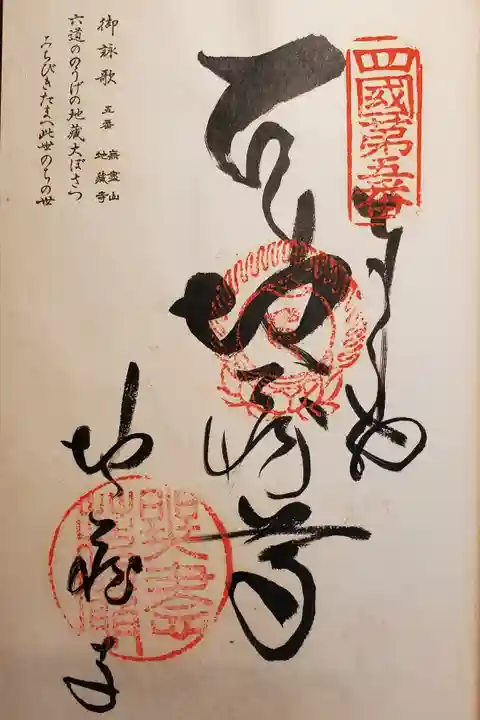 四國第五番
地蔵尊
地蔵寺
御詠歌 五番 無盡山 地藏寺
六道ののうげの地藏大ぼさつ
みちびきたまへ此世のちの世